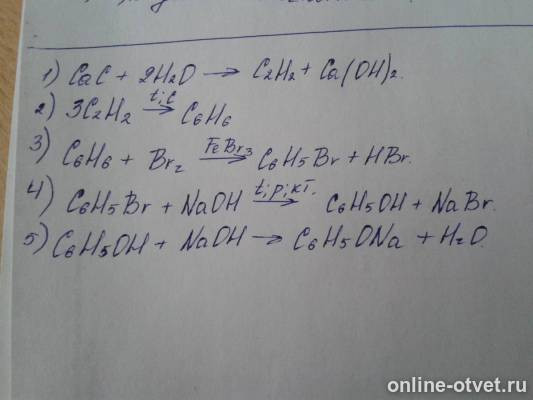 1) CaC + 2H2O → C2H2 + Ca(OH)2.
2) 3C2H2 t;C → C6H6
3) C6H6 + Br2 FeBr3 → C6H5Br + HBr.
4) C6H5Br + NaOH t;p;кт. → C6H5OH + NaBr.
5) C6H5OH + NaOH → C6H5ONa + H2O.
online-otvet.ru